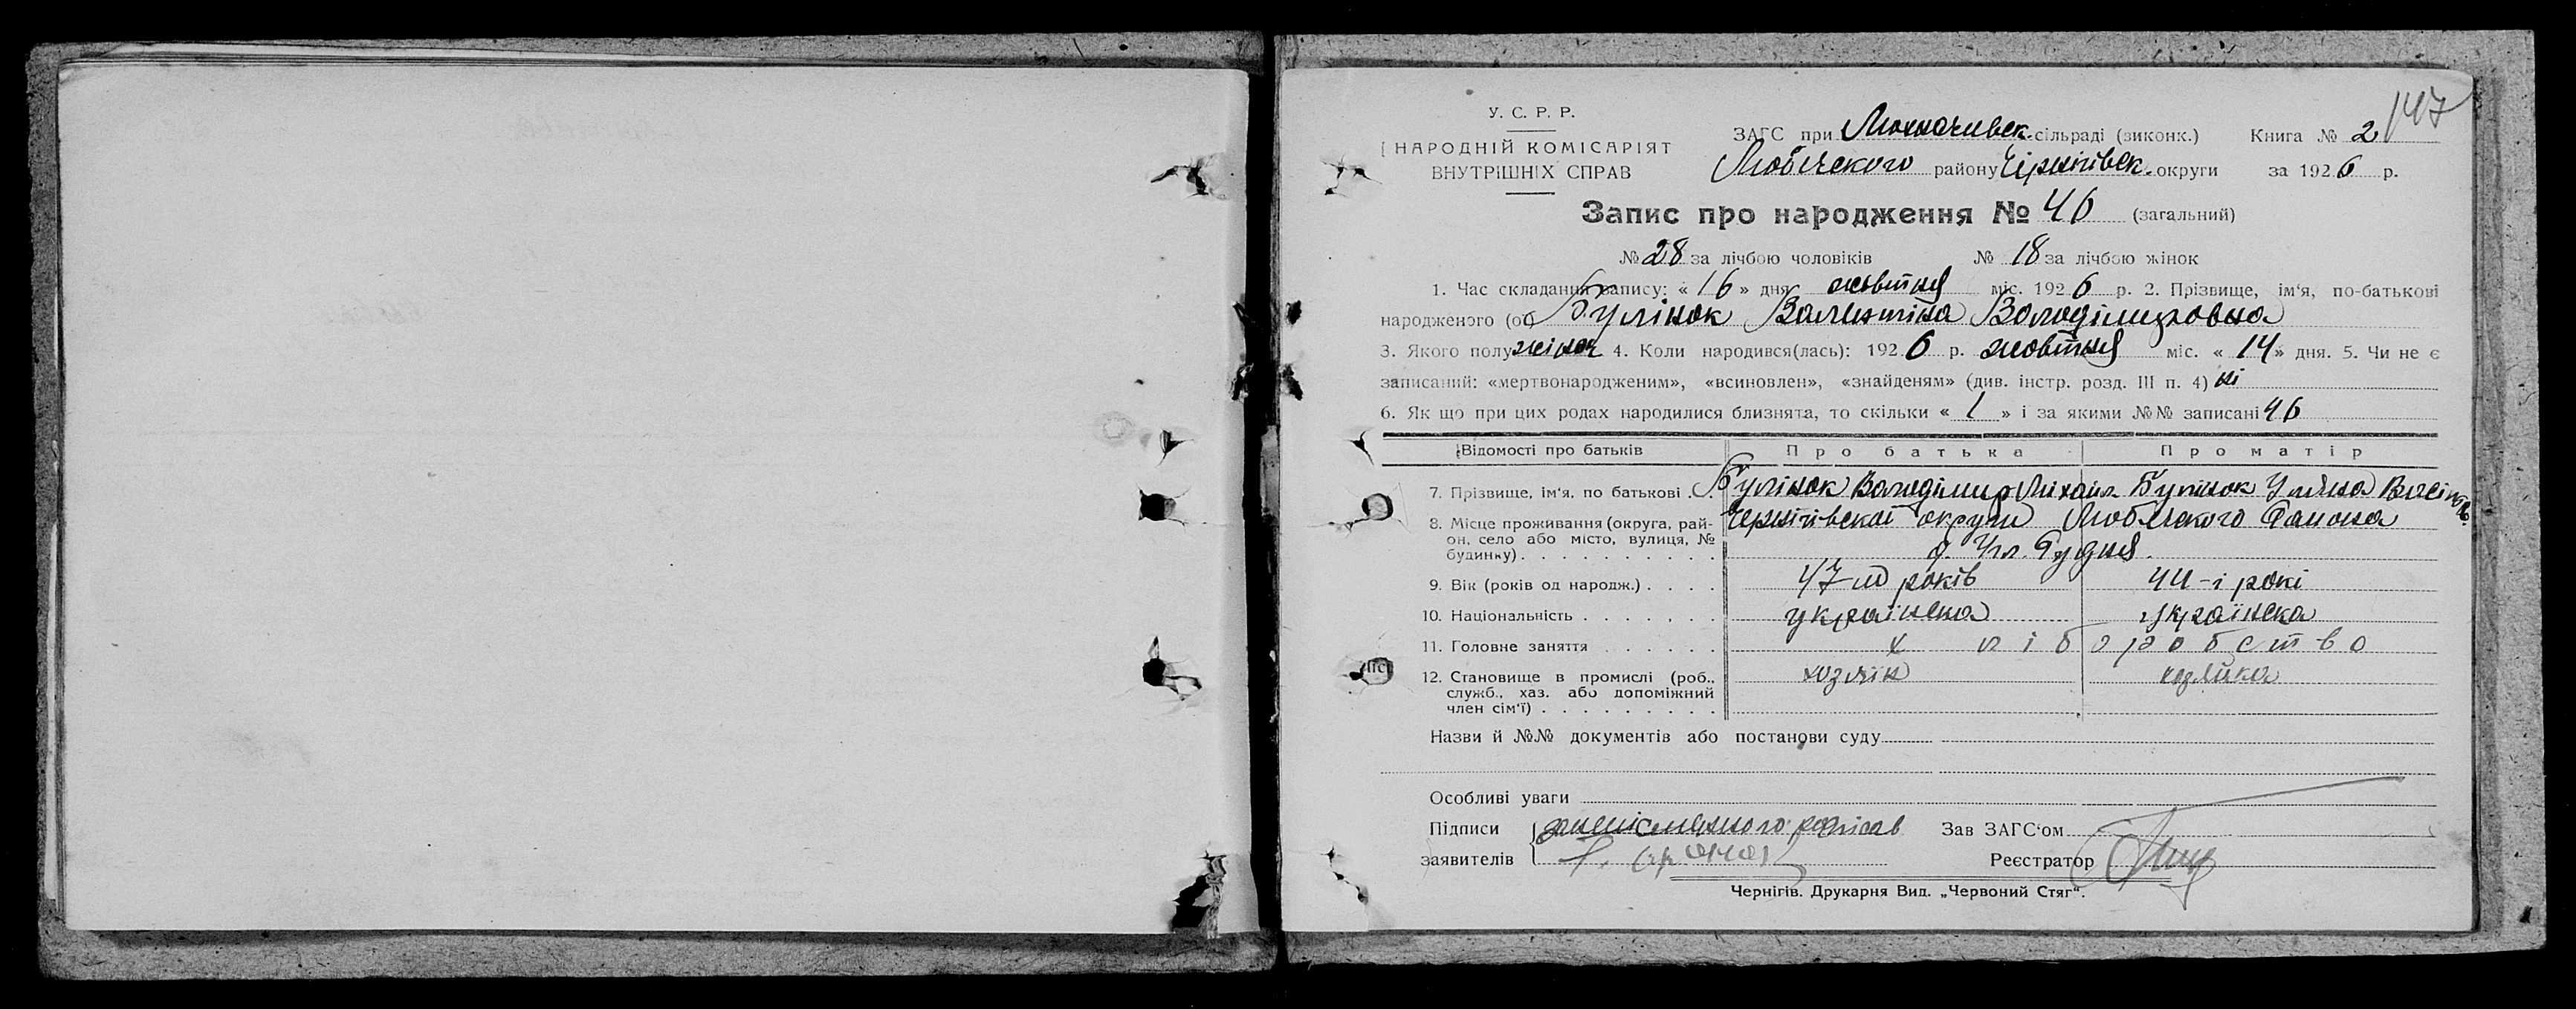 147
У. С. Р. Р.
НАРОДНІЙ КОМІСАРІЯТ
ВНУТРІШНІХ СПРАВ
ЗАГС при Мохначивск. сільраді (виконк.) Книга № 2
Любечского району Чірнігівск. округи за 1926 р.
Запис про народження № 46 (загальний)
№ 28 за лічбою чоловіків № 18 за лічбою жінок
1. Час складання запису: « 16 » дня жовтня міс. 1926 р. 2. Прізвище, ім'я, по-батькові
народженого (ої) Булінок Валентіна Володімировна
3. Якого полу жіноч 4. Коли народився(лась): 1926 р. жовтня міс. « 14 » дня. 5. Чи не є
записаний: «мертвонародженим», «всиновлен», «знайденям» (див. інстр. розд. III п. 4) ні
6. Як що при цих родах народилися близнята, то скільки « 1 » і за якими №№ записані 46
Відомості про батьків Про батька Про матір
7. Прізвище, ім'я, по батькові . . Булінок Володімир Михаил Булінок Уляна
8. Місце проживання (округа, рай- Чернігівскої округи Любечского Району
он, село або місто, вулиця, №
будинку) . . . . . . . . . . д. Рудня
9. Вік (років од народж.) . . . . 47-м років 44-і рокі
10. Національність . . . . . . . українска українска
11. Головне заняття . . . . . . хліборобство
12. Становище в промислі (роб., хозяін хозяйка
служб., хаз. або допоміжний
член сім'ї) . . . . . . . . .
Назви й №№ документів або постанови суду
Особливі уваги
Підписи Зав ЗАГС'ом
заявителів Реєстратор
Чернігів. Друкарня Вид. „Червоний Стяг".